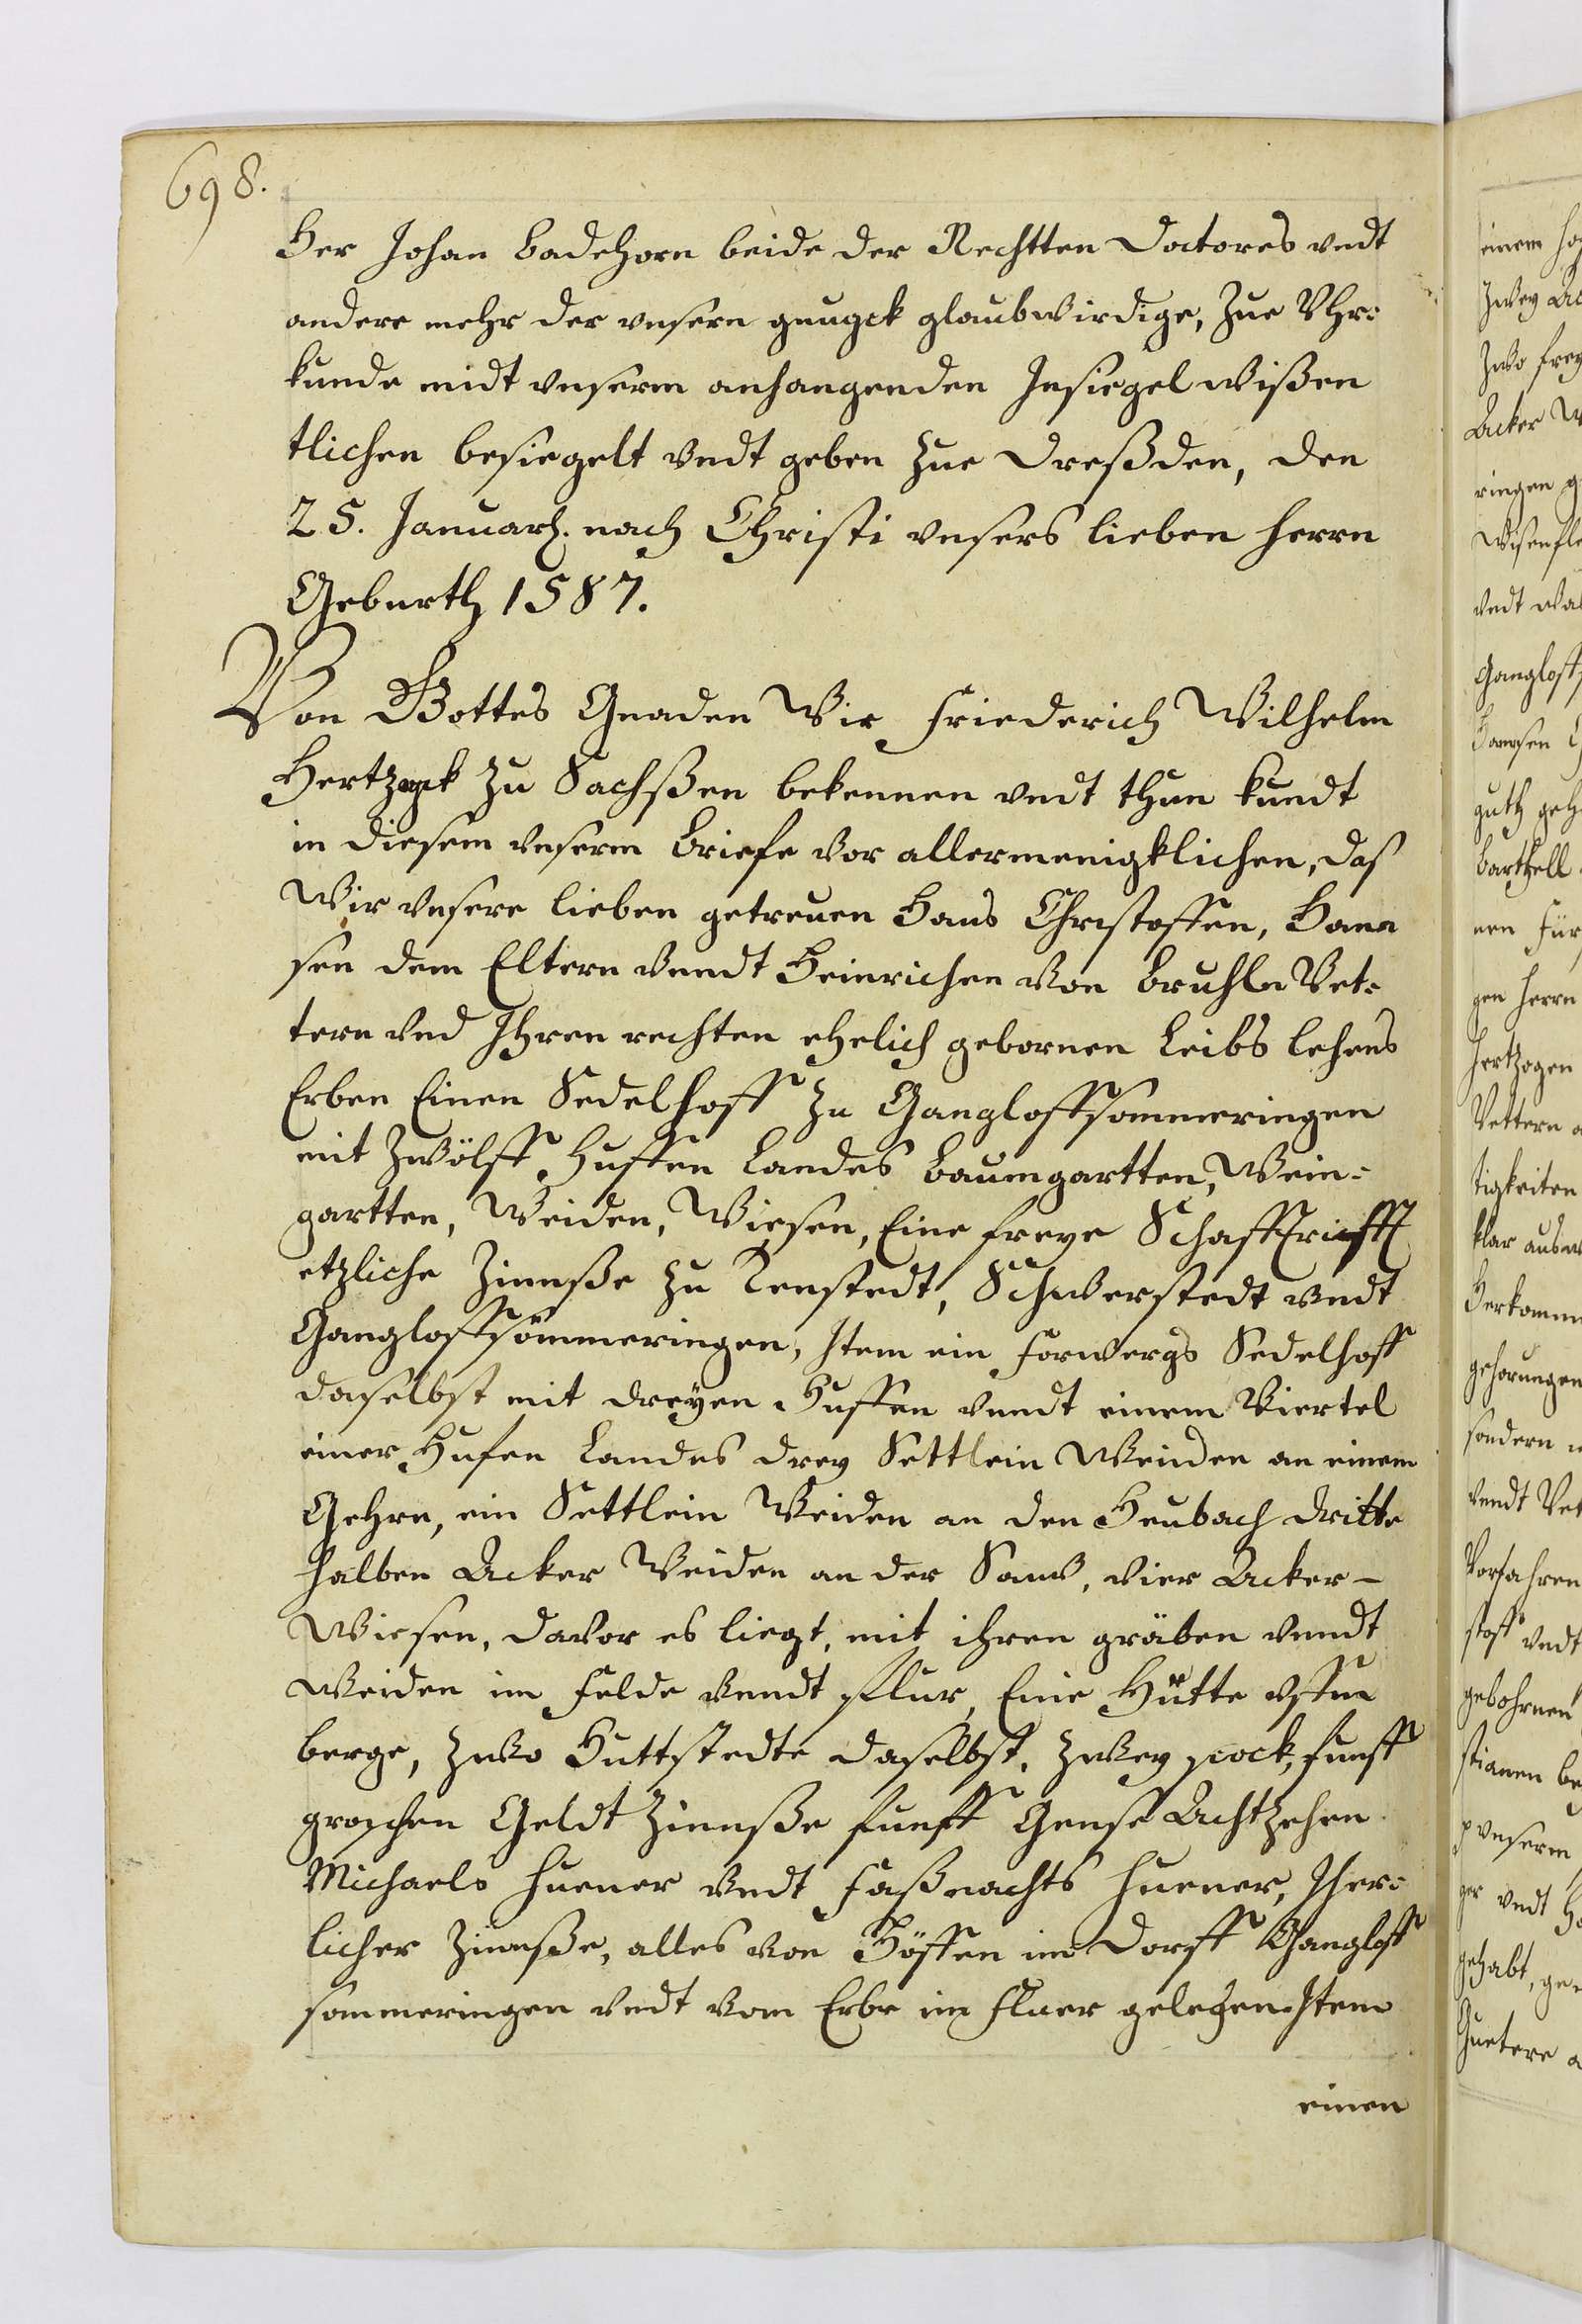 698.
Her Johan Badehorn beide der Rechtten Doctores vndt
andere mehr der vnsern gnugck glaubwirdige, Zue Vhr=
kunde midt vnserm anhangenden Insiegel wißen
tlichen besiegelt vndt geben Zue Dreßden, den
25. Januarj. nach Christi vnsers lieben herrn
Geburth 1587.
Von Gottes Gnaden Wir Friederich Wilhelm
Hertzogk Zu Sachßen bekennen vndt thun kundt
in diesem vnserm Briefe vor allermenigklichen, das
Wir vnsere lieben getreuen Hans Christoffen, Hann
sen dem Eltern vnndt Heinrichen von Bruhln Vet=
tern vnd Ihren rechten ehelich gebornen Leibs lehens
Erben Einen Sedelhoff Zu Gangloffsommeringen
mit Zwölff Huffen Landes Baumgartten, Wein=
gartten, Weiden, Wiesen, Eine freye Schafftrifft
etzliche Zinnße Zu Tenstedt, Schwerstedt vndt
Gangloffsömmeringen, Item ein forwergs Sedelhoff
daselbst mit dreyen Huffen vnndt einem Viertel
einer Hufen Landes drey Settlein Weiden an einem
Gehrn, ein Settlein Weiden an den Heubach dritte
halben Acker Weiden an der Saw, vier Acker-
Wiesen, davor es liegt, mit ihren gräben vnndt
Weiden im Felde vnndt flur, Eine Hütte vffm
berge, Zwo Huttstedte daselbst, Zwey schock, funff
groschen Geldt Zinnße funff Gense Achtzehen
Michaels huener vndt Faßnachts huener, Jher=
licher Zinnße, alles von Höffen im Dorff Gangloff
sommeringen vndt vom Erbe im Fluer gelegen Item
einen
einem
Zwey
Zwo frey
Acker
ringen
vndt
Gangloff
guth
Barthell
nen Für
gen herrn
hertzogen
Vettern
tigkeiten
klar
Herkomm
gehorungen
sondern
vnndt Vet
Vorfahren
stoff vndt
gebohrnen
stianen be
vnserm
ger vndt
gehabt, ge
Guetere